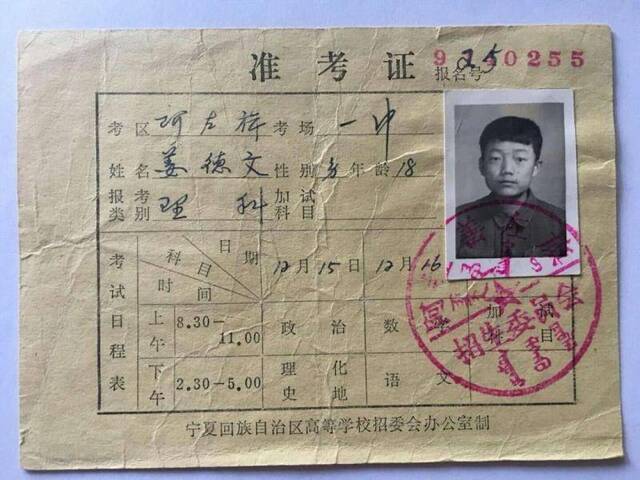 准考证
报名号 9250255
考区 阿左旗 考场 一中
姓名 姜德文 性别 男 年龄 18
报考类别 理科 加试科目
考试日程表 科目 时间 日期 12月15日 12月16
上午 8.30—11.00 政治 数学 加试科目
下午 2.30—5.00 理化 史地 语文
招生委员会
宁夏回族自治区高等学校招委会办公室制